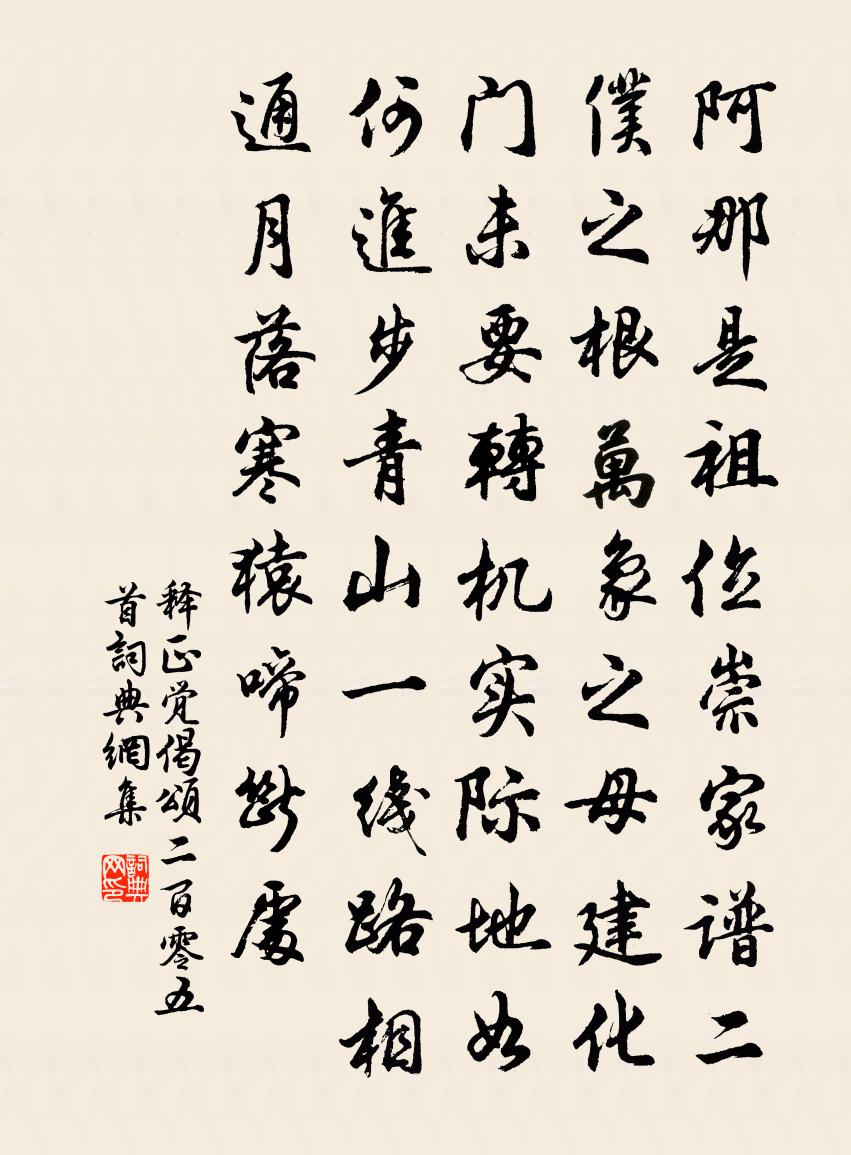 阿那是祖俭崇家谱二
僕之根萬象之母建化
门未要轉机实际地如
何進步青山一线路相
通月落寒猿啼斷處
释正觉偈頌二百零五
首詞典網集
詞典网印